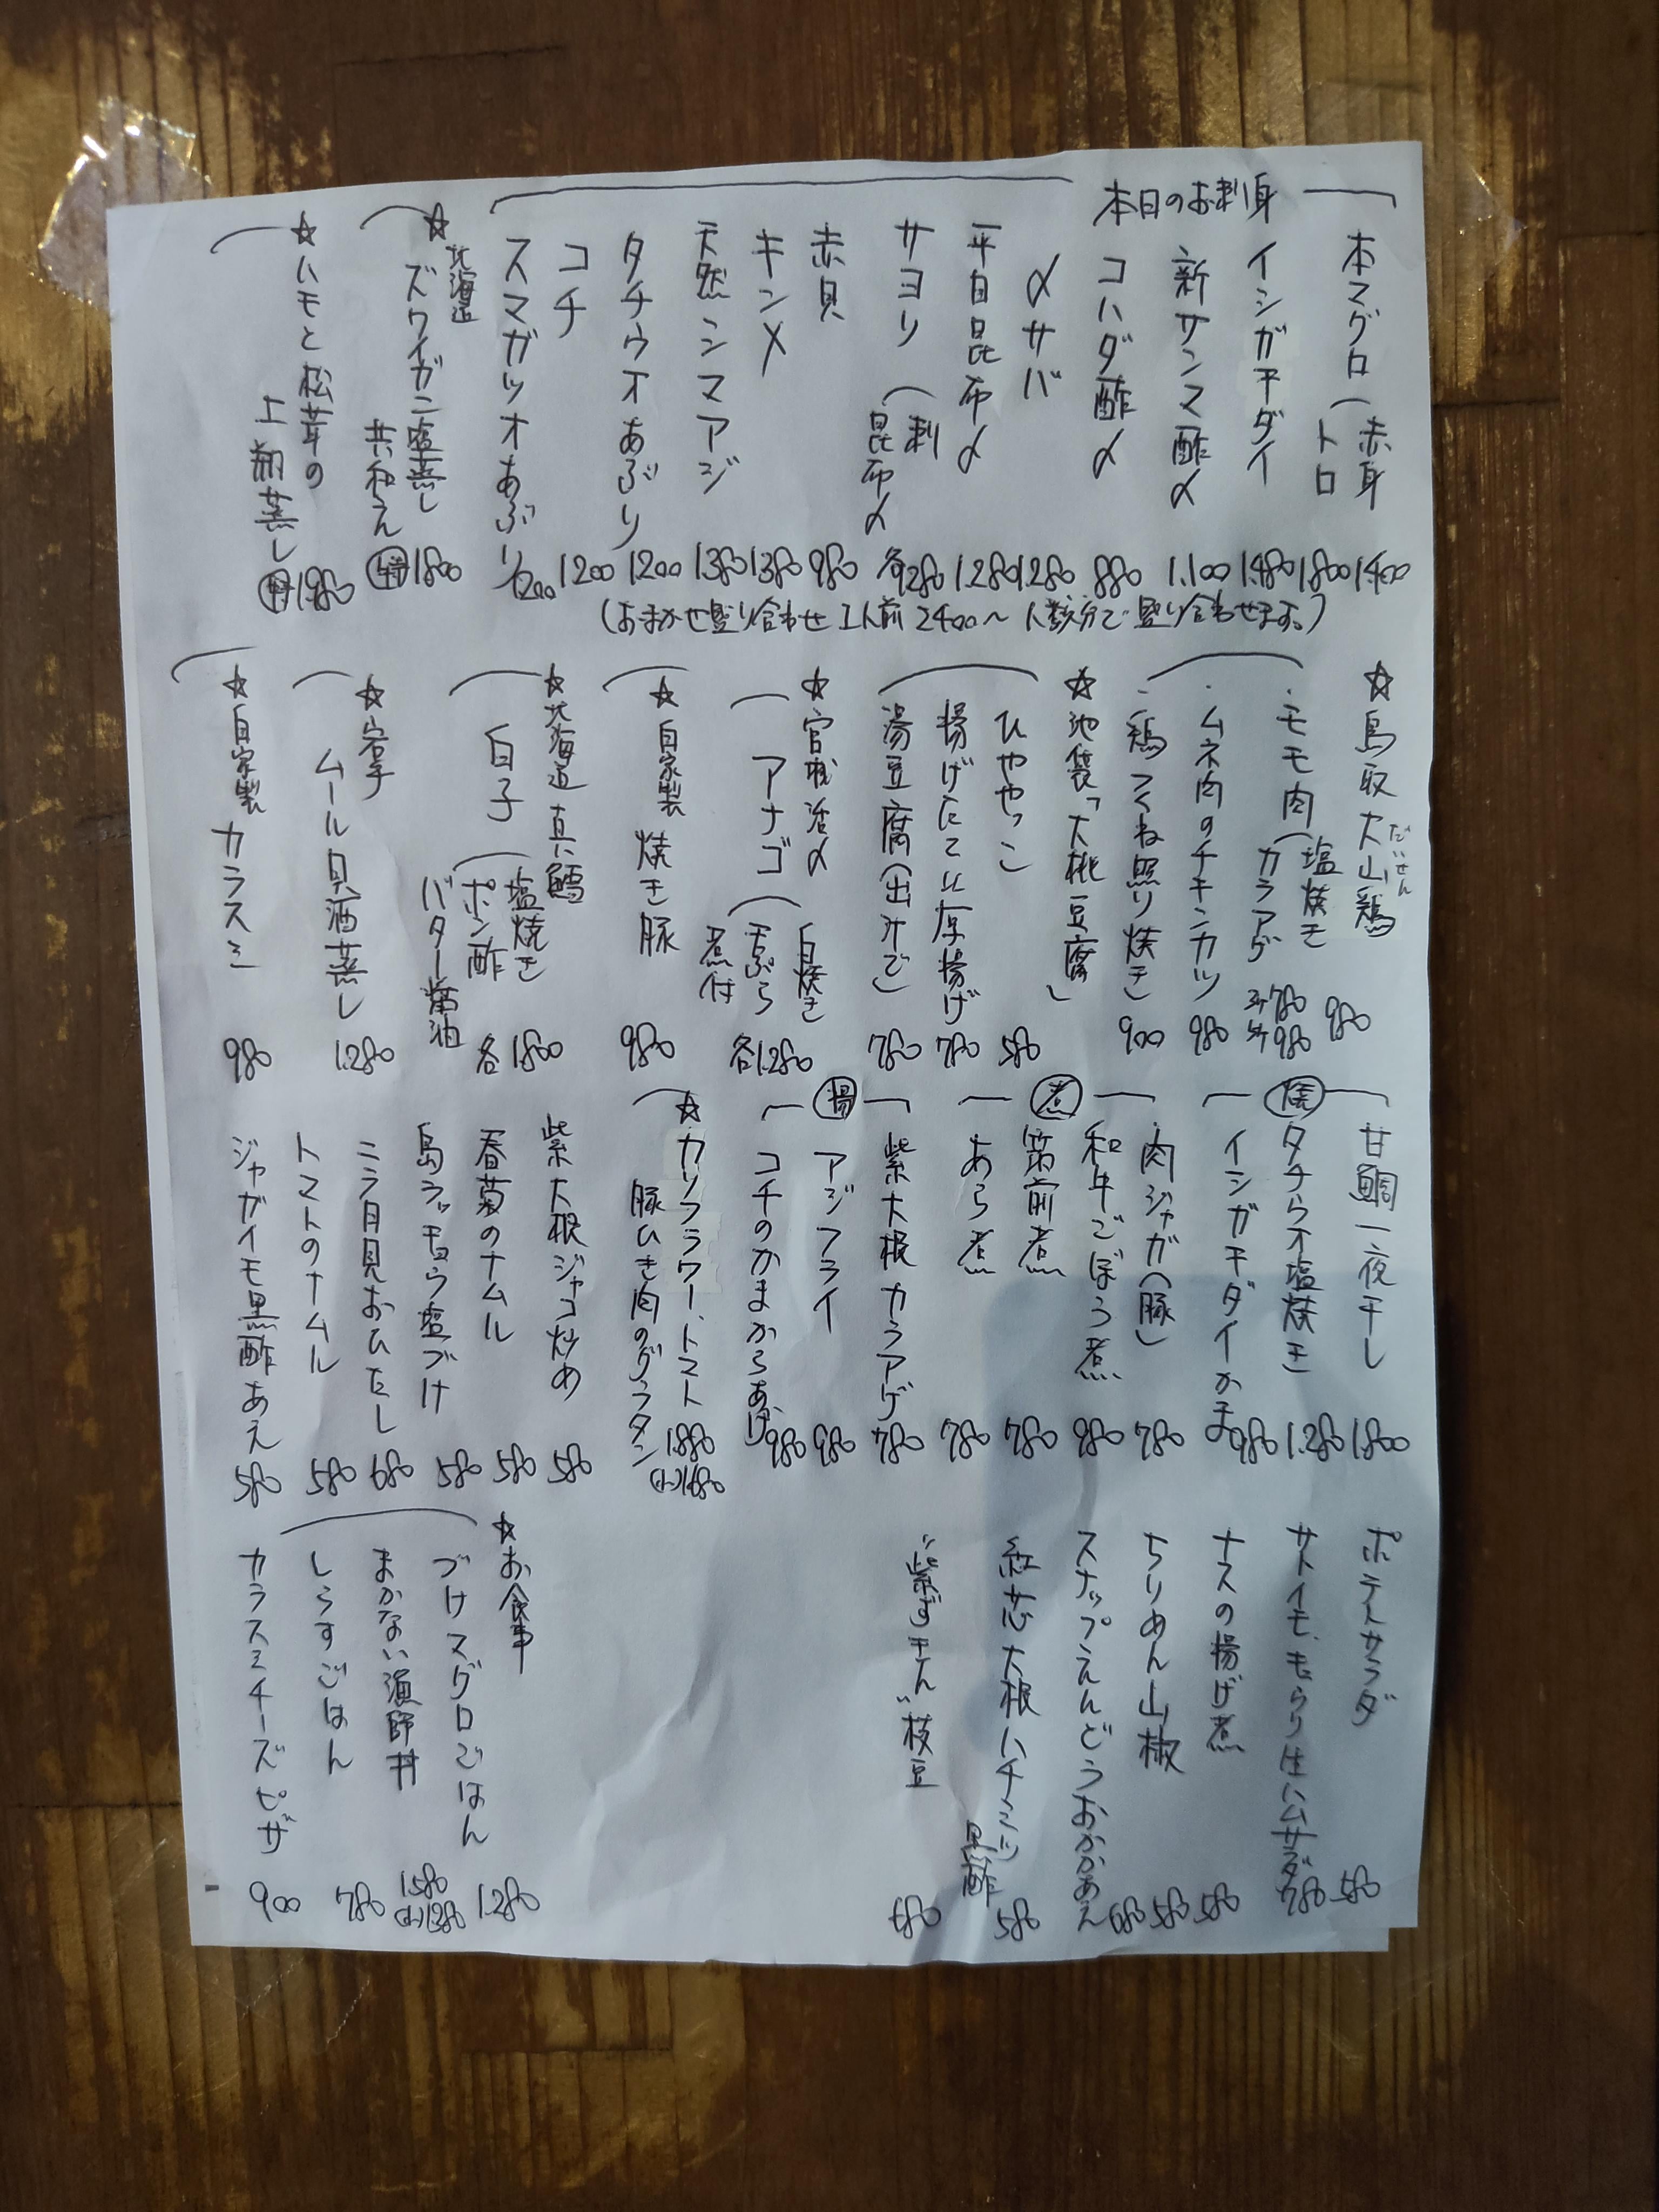 本日のお刺身
本マグロ(赤身 1400
トロ 1800
イシガキダイ 1.480
新サンマ酢〆 1.100
コハダ酢〆 880
〆サバ 1.280
平目昆布〆 1.280
サヨリ(刺
昆布〆 各980
赤貝 980
キンメ 1380
天然シマアジ 1380
タチウオあぶり 1200
コチ 1200
スマガツオあぶり 1200
(おまかせ盛り合わせ 1人前 2400〜 人数分で盛り合わせます。)
☆北海道
ズワイガニ塩蒸し
共和え 1800
☆ハモと松茸の
土瓶蒸し 1980
☆鳥取大山鶏
だいせん
・モモ肉(塩焼き 980
カラアゲ 3ケ780
5ケ980
・ムネ肉のチキンカツ 980
・鶏つくね照り焼き 900
☆池袋「大桃豆腐」
ひややっこ 580
揚げたて山厚揚げ 780
湯豆腐(出汁で) 780
☆官越活〆
アナゴ(白焼き
天ぷら
煮付 各1.280
☆自家製 焼き豚 980
☆北海道真鱈
白子(塩焼き
ポン酢
バター醤油 各1800
☆岩手
ムール貝酒蒸し 1.280
☆自家製 カラスミ 980
焼
甘鯛一夜干し 1.800
タチウオ塩焼き 1.280
イシガキダイかま 980
煮
肉ジャガ(豚) 780
和牛ごぼう煮 980
筑前煮 780
あら煮 780
揚
紫大根カラアゲ 780
アジフライ 980
コチのかまからあげ 980
☆カリフラワー、トマト
豚ひき肉のグラタン 1.880
(小)1480
紫大根ジャコ炒め 580
春菊のナムル 580
島ラッキョウ塩づけ 580
ニラ月見おひたし 680
トマトのナムル 580
ジャガイモ黒酢あえ 580
ポテトサラダ 580
サトイモ、もっちり生ハムサラダ 780
ナスの揚げ煮 580
ちりめん山椒 580
スナップえんどうおかかあえ 680
紅芯大根ハチミツ
黒酢 580
"紫ずきん"枝豆 680
☆お食事
づけマグロごはん 1.280
まかない漁師丼 1.580
(小)1380
しらすごはん 780
カラスミチーズピザ 900